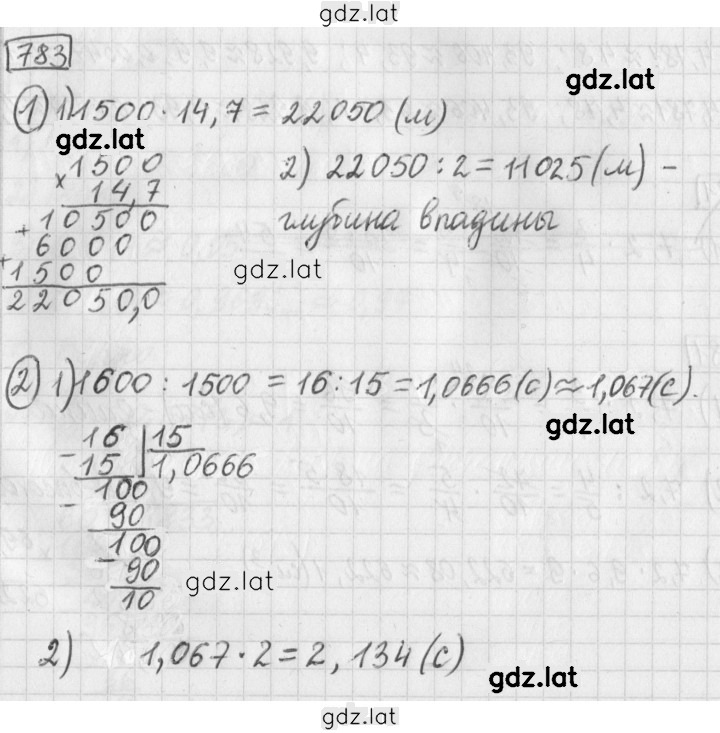 gdz.lat
783
gdz.lat
1) 1) 1500 · 14,7 = 22050 (м)
gdz.lat
1500
× 14,7
+ 10500
6000
+ 1500
22050,0
2) 22050 : 2 = 11025 (м) –
глубина впадины
gdz.lat
2) 1) 1600 : 1500 = 16 : 15 = 1,0666 (с) ≈ 1,067 (с).
gdz.lat
16 | 15
– 15 | 1,0666
100
– 90
100
– 90
10
gdz.lat
2) 1,067 · 2 = 2,134 (с)
gdz.lat
gdz.lat